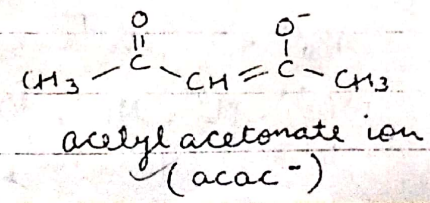 O O⁻
CH3 - C - CH = C - CH3
acetyl acetonate ion
(acac⁻)